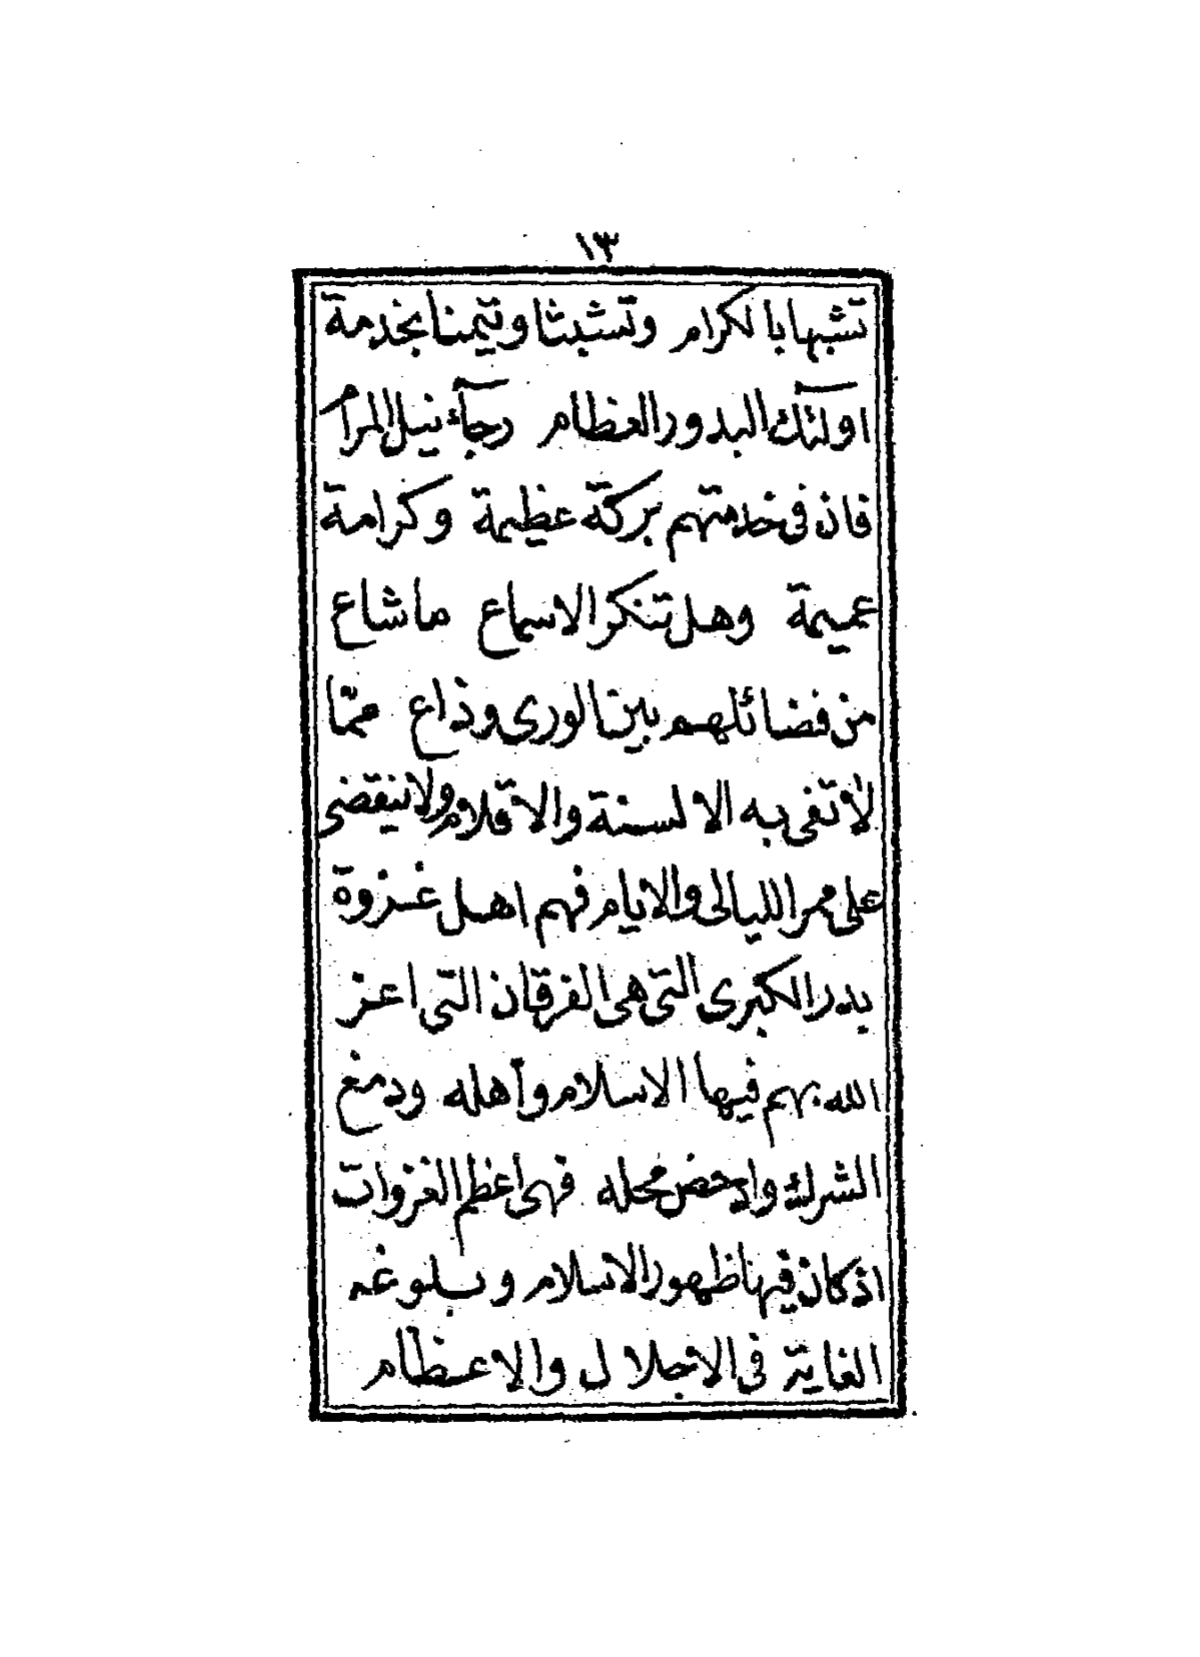 ١٣
تشبها بالكرام وتشبثا وتيمنا بخدمة
اولئك البدور العظام رجآء نيل المرام
فان فى خدمتهم بركة عظيمة وكرامة
عميمة وهل تنكر الاسماع ما شاع
من فضائلهم بين الورى وذاع ممّا
لا تفى به الالسنة والاقلام ولا ينقضى
على ممر الليالى والايام فهم اهل غزوة
بدر الكبرى التى هى الفرقان التى اعز
الله بهم فيها الاسلام وأهله ودمغ
الشرك وادحض محله فهى اعظم الغزوات
اذ كان فيها ظهور الاسلام وبلوغه
الغاية فى الاجلال والاعظام